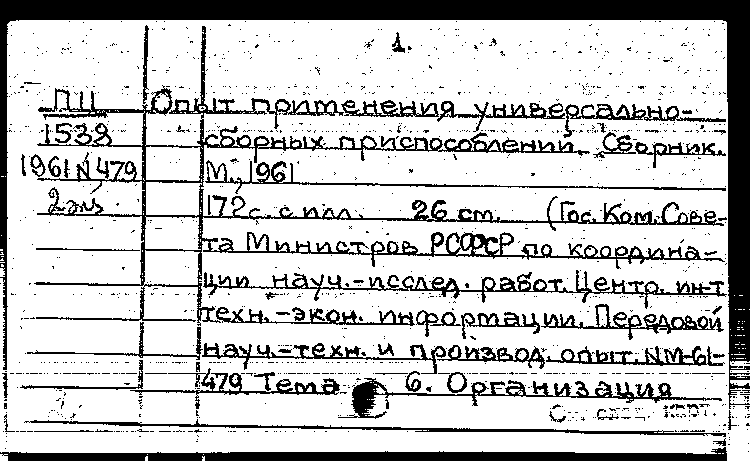 1.
ПЦ Опыт применения универсально-
1538 сборных приспособлений. Сборник.
1961 N 479 М., 1961
2 экз 172 с. с илл. 26 см. (Гос. Ком. Сове-
та Министров РСФСР по координа-
ции науч.-исслед. работ. Центр. ин-т
техн.-экон. информации. Передовой
науч.-техн. и производ. опыт. N М-61-
479 Тема 6. Организация
См. след. карт.